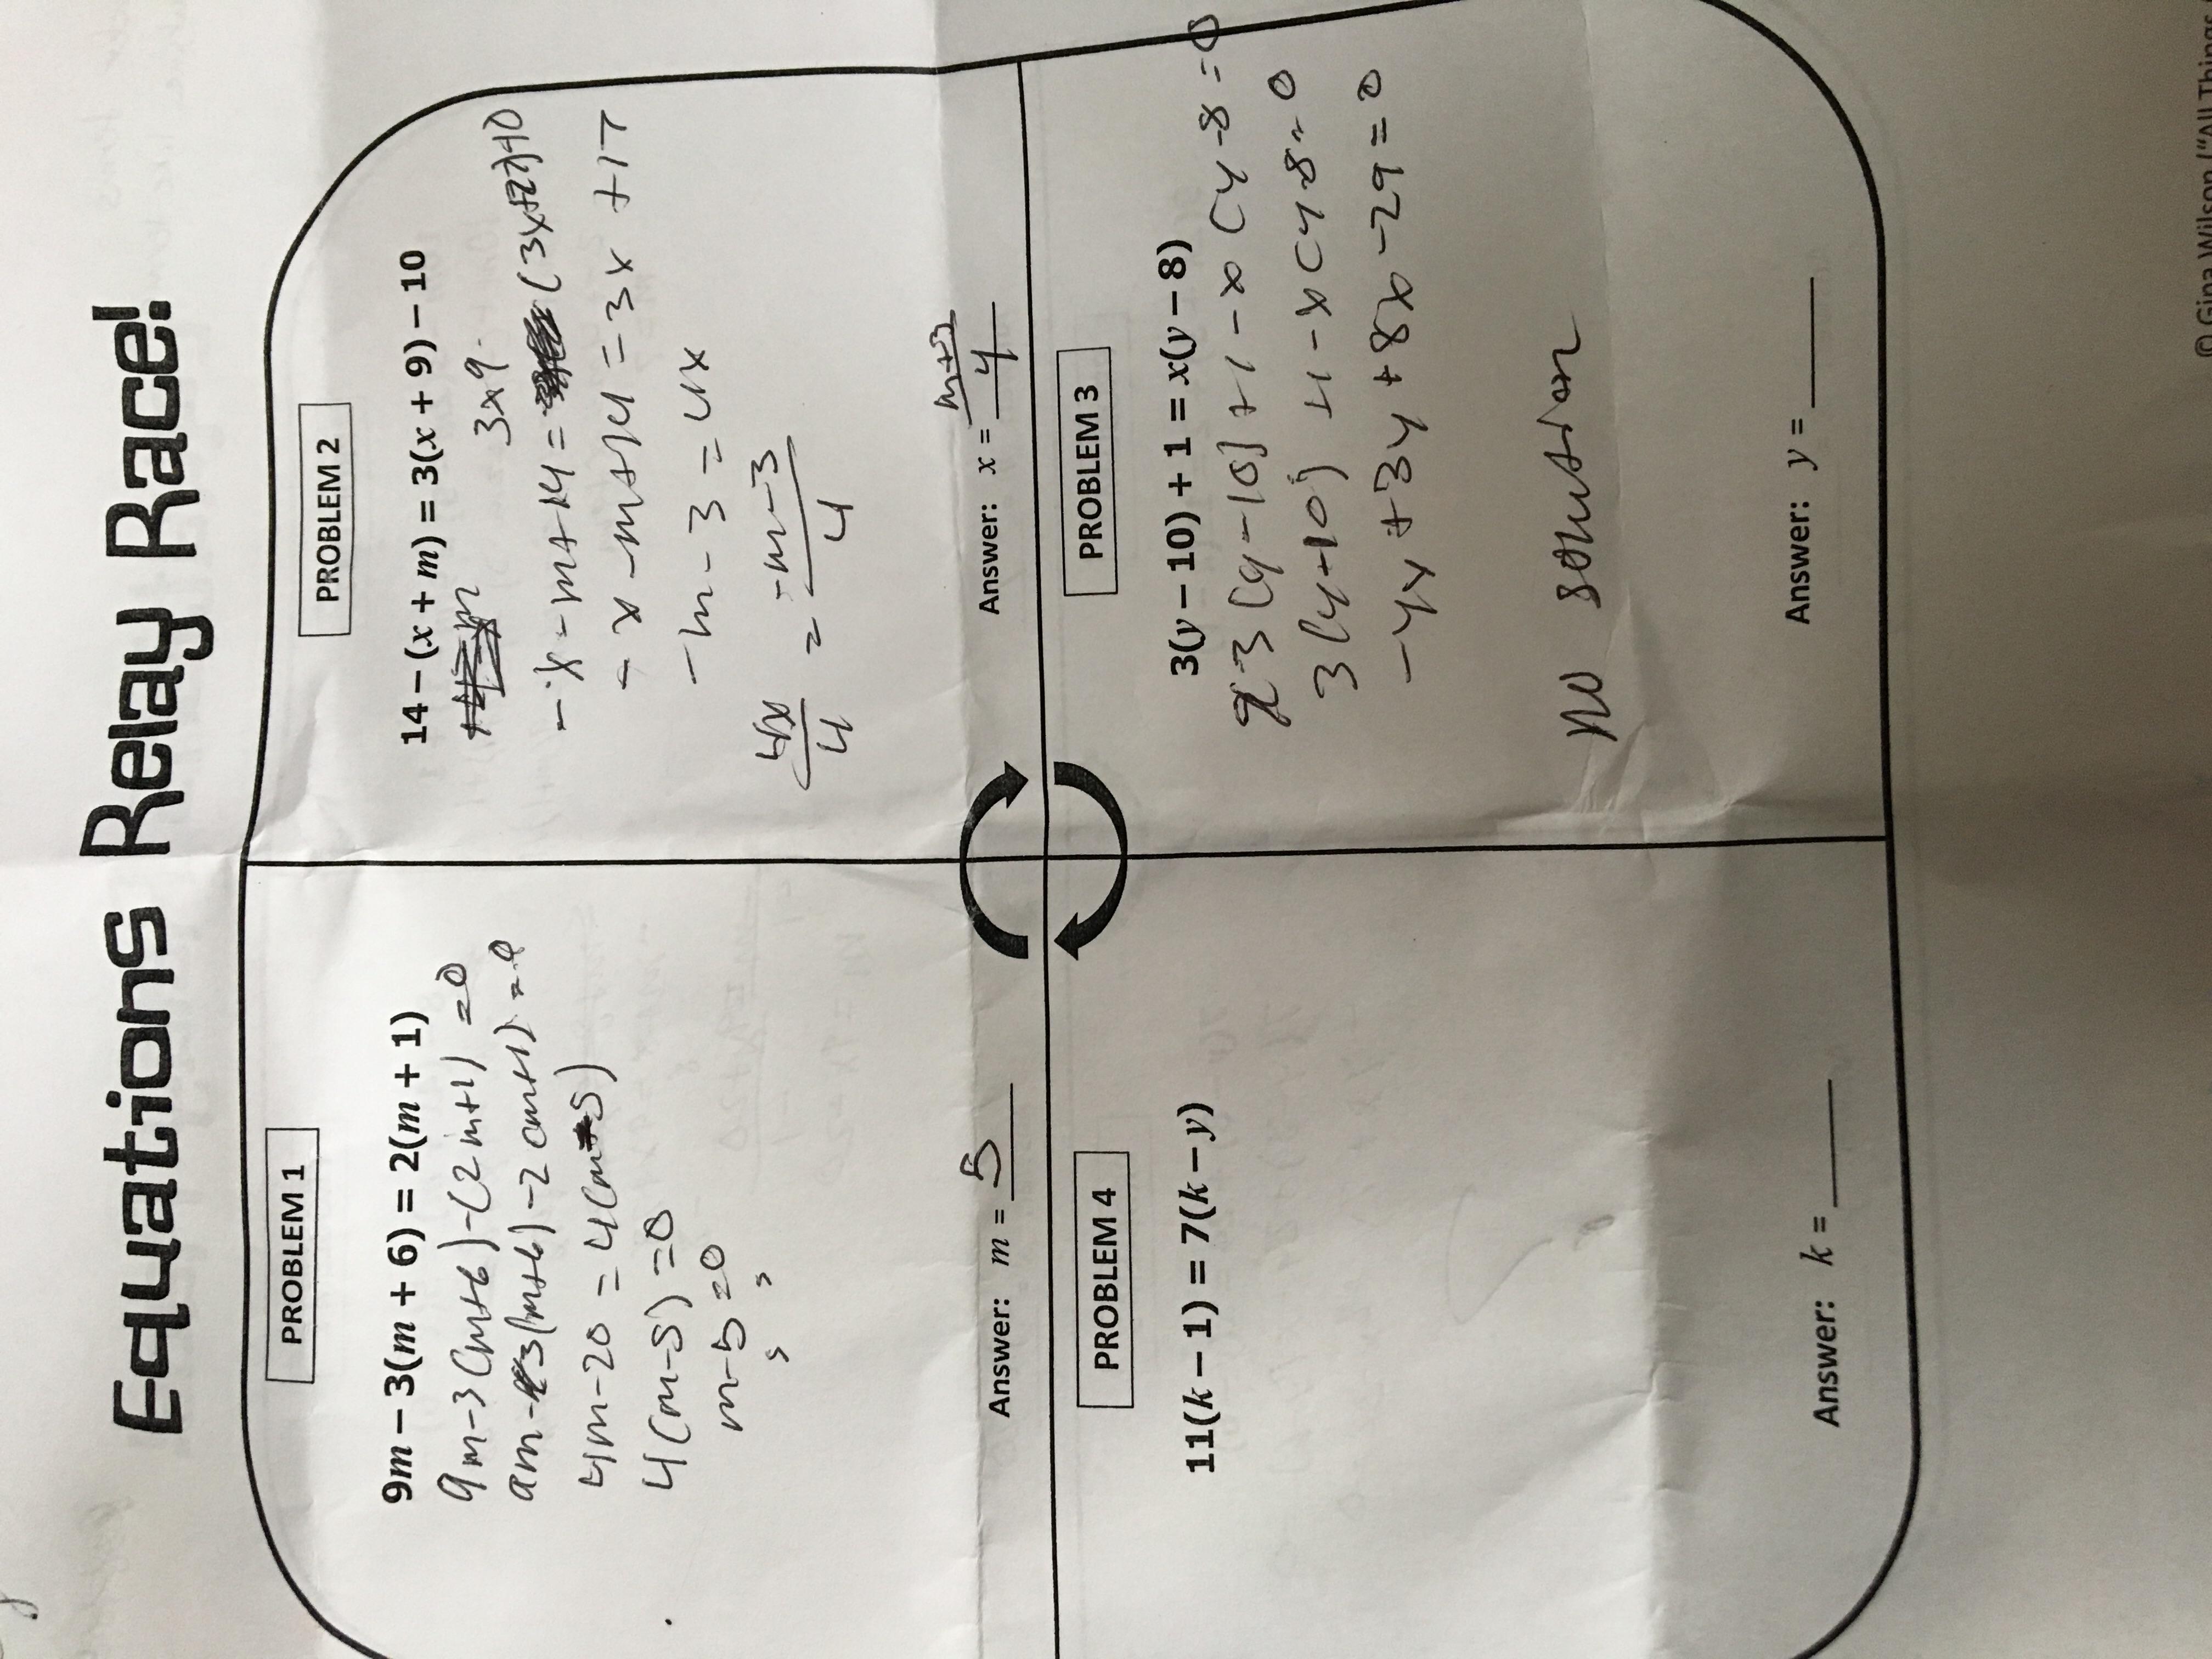 Equations Relay Race!
PROBLEM 1
9m – 3(m + 6) = 2(m + 1)
9m-3(m+6)-(2m+1) =0
9m-3(m+6)-2(m+1)=0
4m-20=4(m-5)
4(m-5)=0
m-5=0
Answer: m = 5
PROBLEM 2
14 – (x + m) = 3(x + 9) – 10
3x9
-x-m+14= (3x+27)-10
-x-m+14=3x+17
-m-3=4x
4x/4 = -m-3/4
Answer: x = m+3/4
PROBLEM 3
3(y – 10) + 1 = x(y – 8)
3(y-10)+1-x(y-8=0
3(y+10)+1-x(y-8=0
-yx+3y+8x-29=0
no solution
Answer: y =
PROBLEM 4
11(k – 1) = 7(k – y)
Answer: k =
© Gina Wilson ("All Things